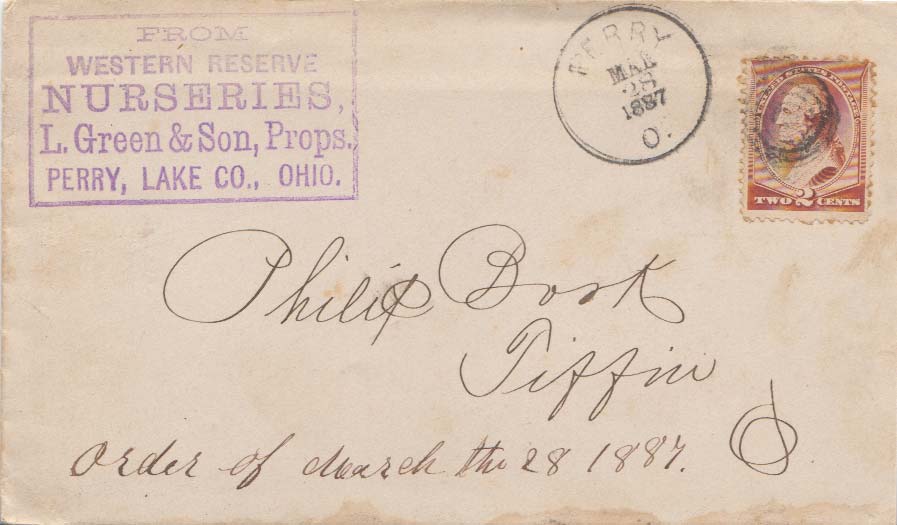 FROM
WESTERN RESERVE
NURSERIES,
L. Green & Son, Props.
PERRY, LAKE CO., OHIO.
PERRY
MAR
28
1887
O.
UNITED STATES POSTAGE
TWO 2 CENTS
Philip Bork
Tiffin
O
Order of March the 28 1887.